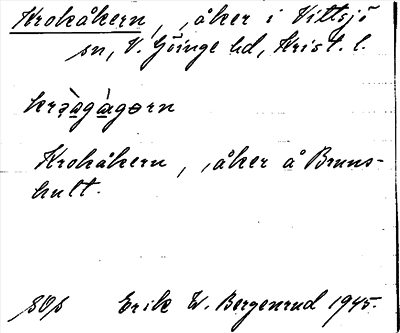 Krokåkern, åker i Vittsjö
sn, V. Göinge hd, Krist. l.
Krokåkern, åker å Bruns-
hult.
Erik W. Bergenrud 1945.